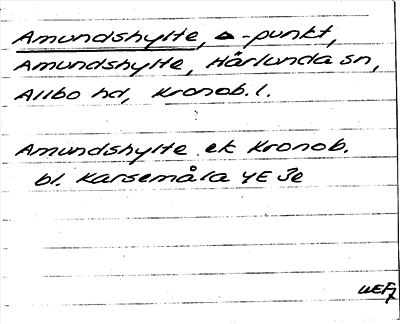 Amundshylte, △-punkt,
Amundshylte, Härlunda sn,
Allbo hd, Kronob. l.
Amundshylte ek Kronob.
bl. Karsemåla 4E 3e